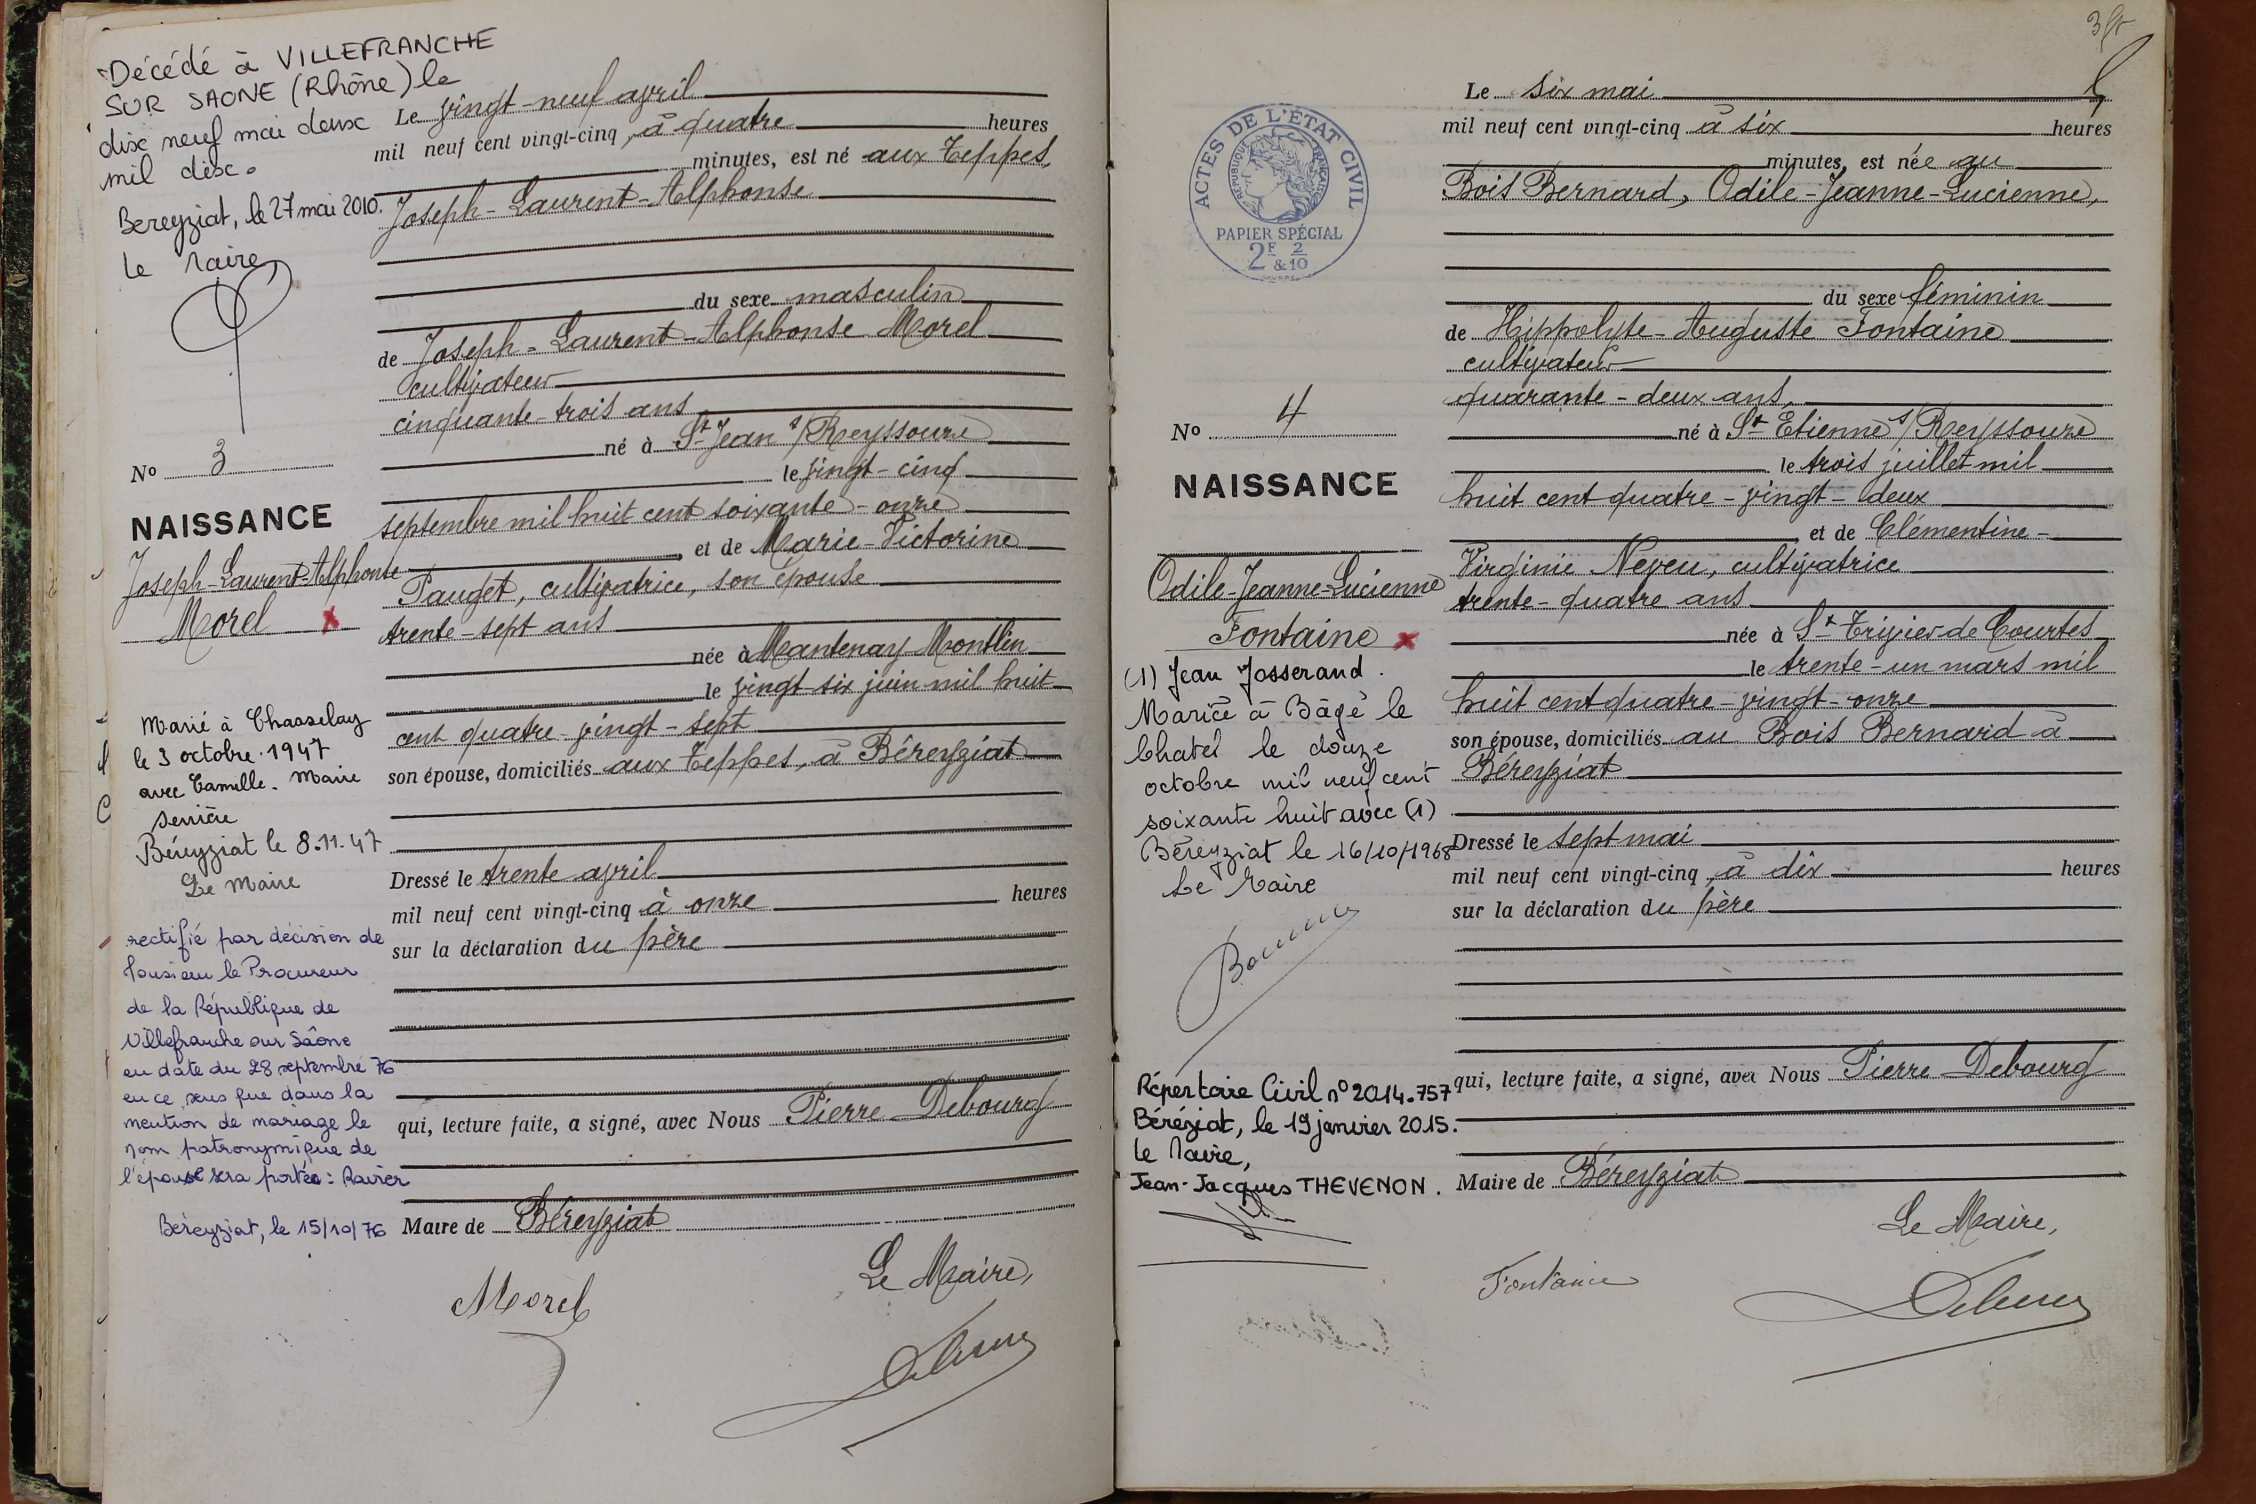 Décédé à VILLEFRANCHE
SUR SAONE (Rhône) le
dix neuf mai deux
mil dix.
Bereyziat, le 27 mai 2010.
Le Maire,
No 3
NAISSANCE
Joseph-Laurent-Alphonse
Morel x
Marié à Chasselay
le 3 octobre 1947
avec Camille. Marie
Béreyziat le 8.11.47
Le Maire
rectifié par décision de
Monsieur le Procureur
de la République de
Villefranche sur Saône
en date du 28 septembre 76
en ce sens que dans la
mention de mariage le
nom patronymique de
l'épouse sera portée : Ravier
Béreyziat, le 15/10/76
Le vingt-neuf avril
mil neuf cent vingt-cinq, à quatre heures
minutes, est né aux Teppes,
Joseph-Laurent-Alphonse
du sexe masculin
de Joseph-Laurent-Alphonse Morel
cultivateur
cinquante-trois ans
né à St Jean s/Reyssouze
le vingt-cinq
septembre mil huit cent soixante-onze
et de Marie-Victorine
Pauget, cultivatrice, son épouse
trente-sept ans
née à Mantenay-Montlin
le vingt-six juin mil huit
cent quatre-vingt-sept
son épouse, domiciliés aux Teppes, à Béreyziat
Dressé le trente avril
mil neuf cent vingt-cinq à onze heures
sur la déclaration du père
qui, lecture faite, a signé, avec Nous Pierre Debourg
Maire de Béreyziat
Le Maire,
Morel
ACTES DE L'ÉTAT CIVIL
RÉPUBLIQUE FRANÇAISE
PAPIER SPÉCIAL
2F & 2/10
No 4
NAISSANCE
Odile-Jeanne-Lucienne
Fontaine x
(1) Jean Josserand.
Mariée à Bâgé le
Chatel le douze
octobre mil neuf cent
soixante huit avec (1)
Béreyziat le 16/10/1968
Le Maire
Répertoire Civil n° 2014.757
Béréziat, le 19 janvier 2015.
Le Maire,
Jean-Jacques THEVENON.
Le six mai
mil neuf cent vingt-cinq à six heures
minutes, est née au
Bois Bernard, Odile-Jeanne-Lucienne,
du sexe féminin
de Hippolyte-Auguste Fontaine
cultivateur
quarante-deux ans,
né à St Etienne s/Reyssouze
le trois juillet mil
huit cent quatre-vingt-deux
et de Clémentine-
Virginie Neveu, cultivatrice
trente-quatre ans
née à St Trivier-de Courtes
le trente-un mars mil
huit cent quatre-vingt-onze
son épouse, domiciliés au Bois Bernard à
Béreyziat
Dressé le sept mai
mil neuf cent vingt-cinq, à dix heures
sur la déclaration du père
qui, lecture faite, a signé, avec Nous Pierre Debourg
Maire de Béreyziat
Le Maire,
Fontaine